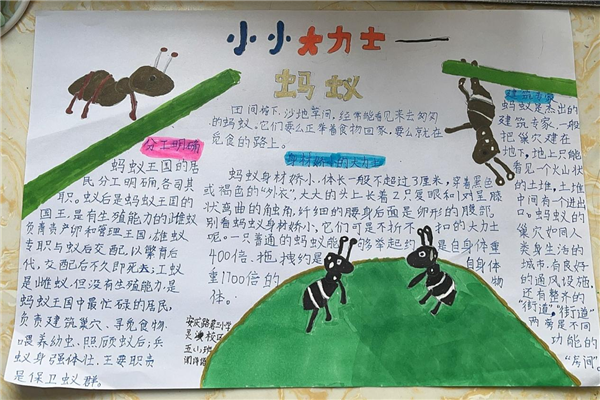 小小大力士——
蚂蚁
田间树下,沙地草间,经常能看见来去匆匆
的蚂蚁。它们要么正举着食物回家,要么就在
觅食的路上。
分工明确
蚂蚁王国的居
民分工明确,各司其
职。蚁后是蚂蚁王国的
国王,是有生殖能力的雌蚁
负责产卵和管理王国;雄蚁
专职与蚁后交配,以繁育后
代,交配后不久即死去;工蚁
是雌蚁,但没有生殖能力,是
蚂蚁王国中最忙碌的居民,
负责建筑巢穴、寻觅食物、
喂养幼虫、照顾蚁后;兵
蚁身强体壮,主要职责
是保卫蚁群。
身材娇小的大力士
蚂蚁身材娇小,体长一般不超过3厘米,穿着黑色
或褐色的“外衣”,大大的头上长着2只复眼和1对呈膝
状弯曲的触角,纤细的腰身后面是卵形的腹部。
别看蚂蚁身材娇小,它们可是不折不扣的大力士
呢。一只普通的蚂蚁能够举起约是自身体重
400倍、拖拽约是自身体
重1700倍的
物体。
建筑专家
蚂蚁是杰出的
建筑专家,一般
把巢穴建在
地下,地上只能
看见一个火山状
的土堆,土堆
中间有一个进出
口。蚂蚁的
巢穴如同人
类身生活的
城市,有良好
的通风设施,
还有整齐的
“街道”,“街道”
两旁是不同
功能的
“房间”。